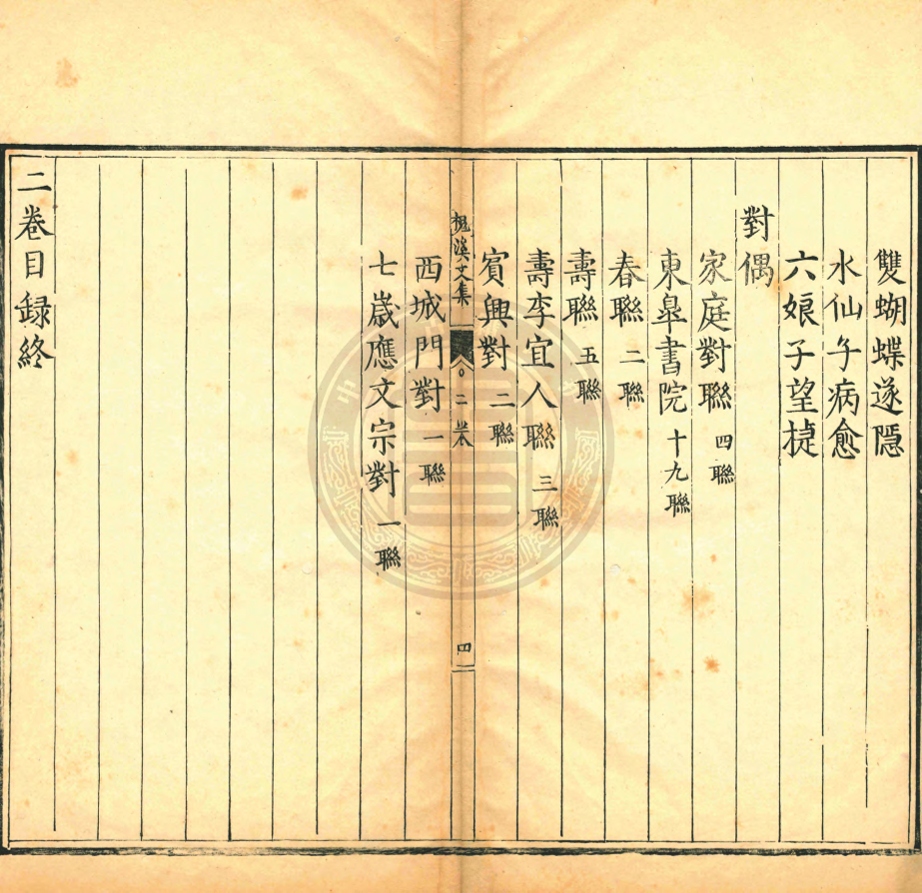 雙蝴蝶遂隱
水仙子病愈
六娘子望捷
對偶
家庭對聯 四聯
東皐書院 十九聯
春聯 二聯
壽聯 五聯
壽李宜人聯 三聯
賓興對 二聯
槐溪文集 二卷 四
西城門對 一聯
七嵗應文宗對 一聯
二卷目録終